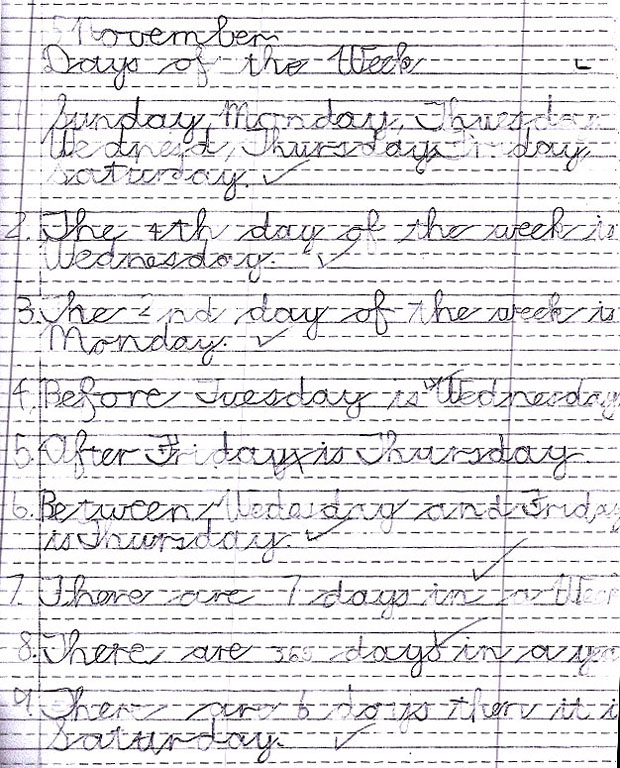 5 November
Days of the Week
Sunday, Monday, Thuesday
Wednesd, Thursday, Friday,
Saturday.
2. The 4th day of the week is
Wednesday.
3. The 2nd day of the week is
Monday.
4. Before Tuesday is Wednesday
5. After Friday is Thursday.
6. Between Wedesday and Friday
is Thursday.
7. There are 7 days in a Week
8. There are 365 days in a
9. There are 6 days then it i
Saturday.